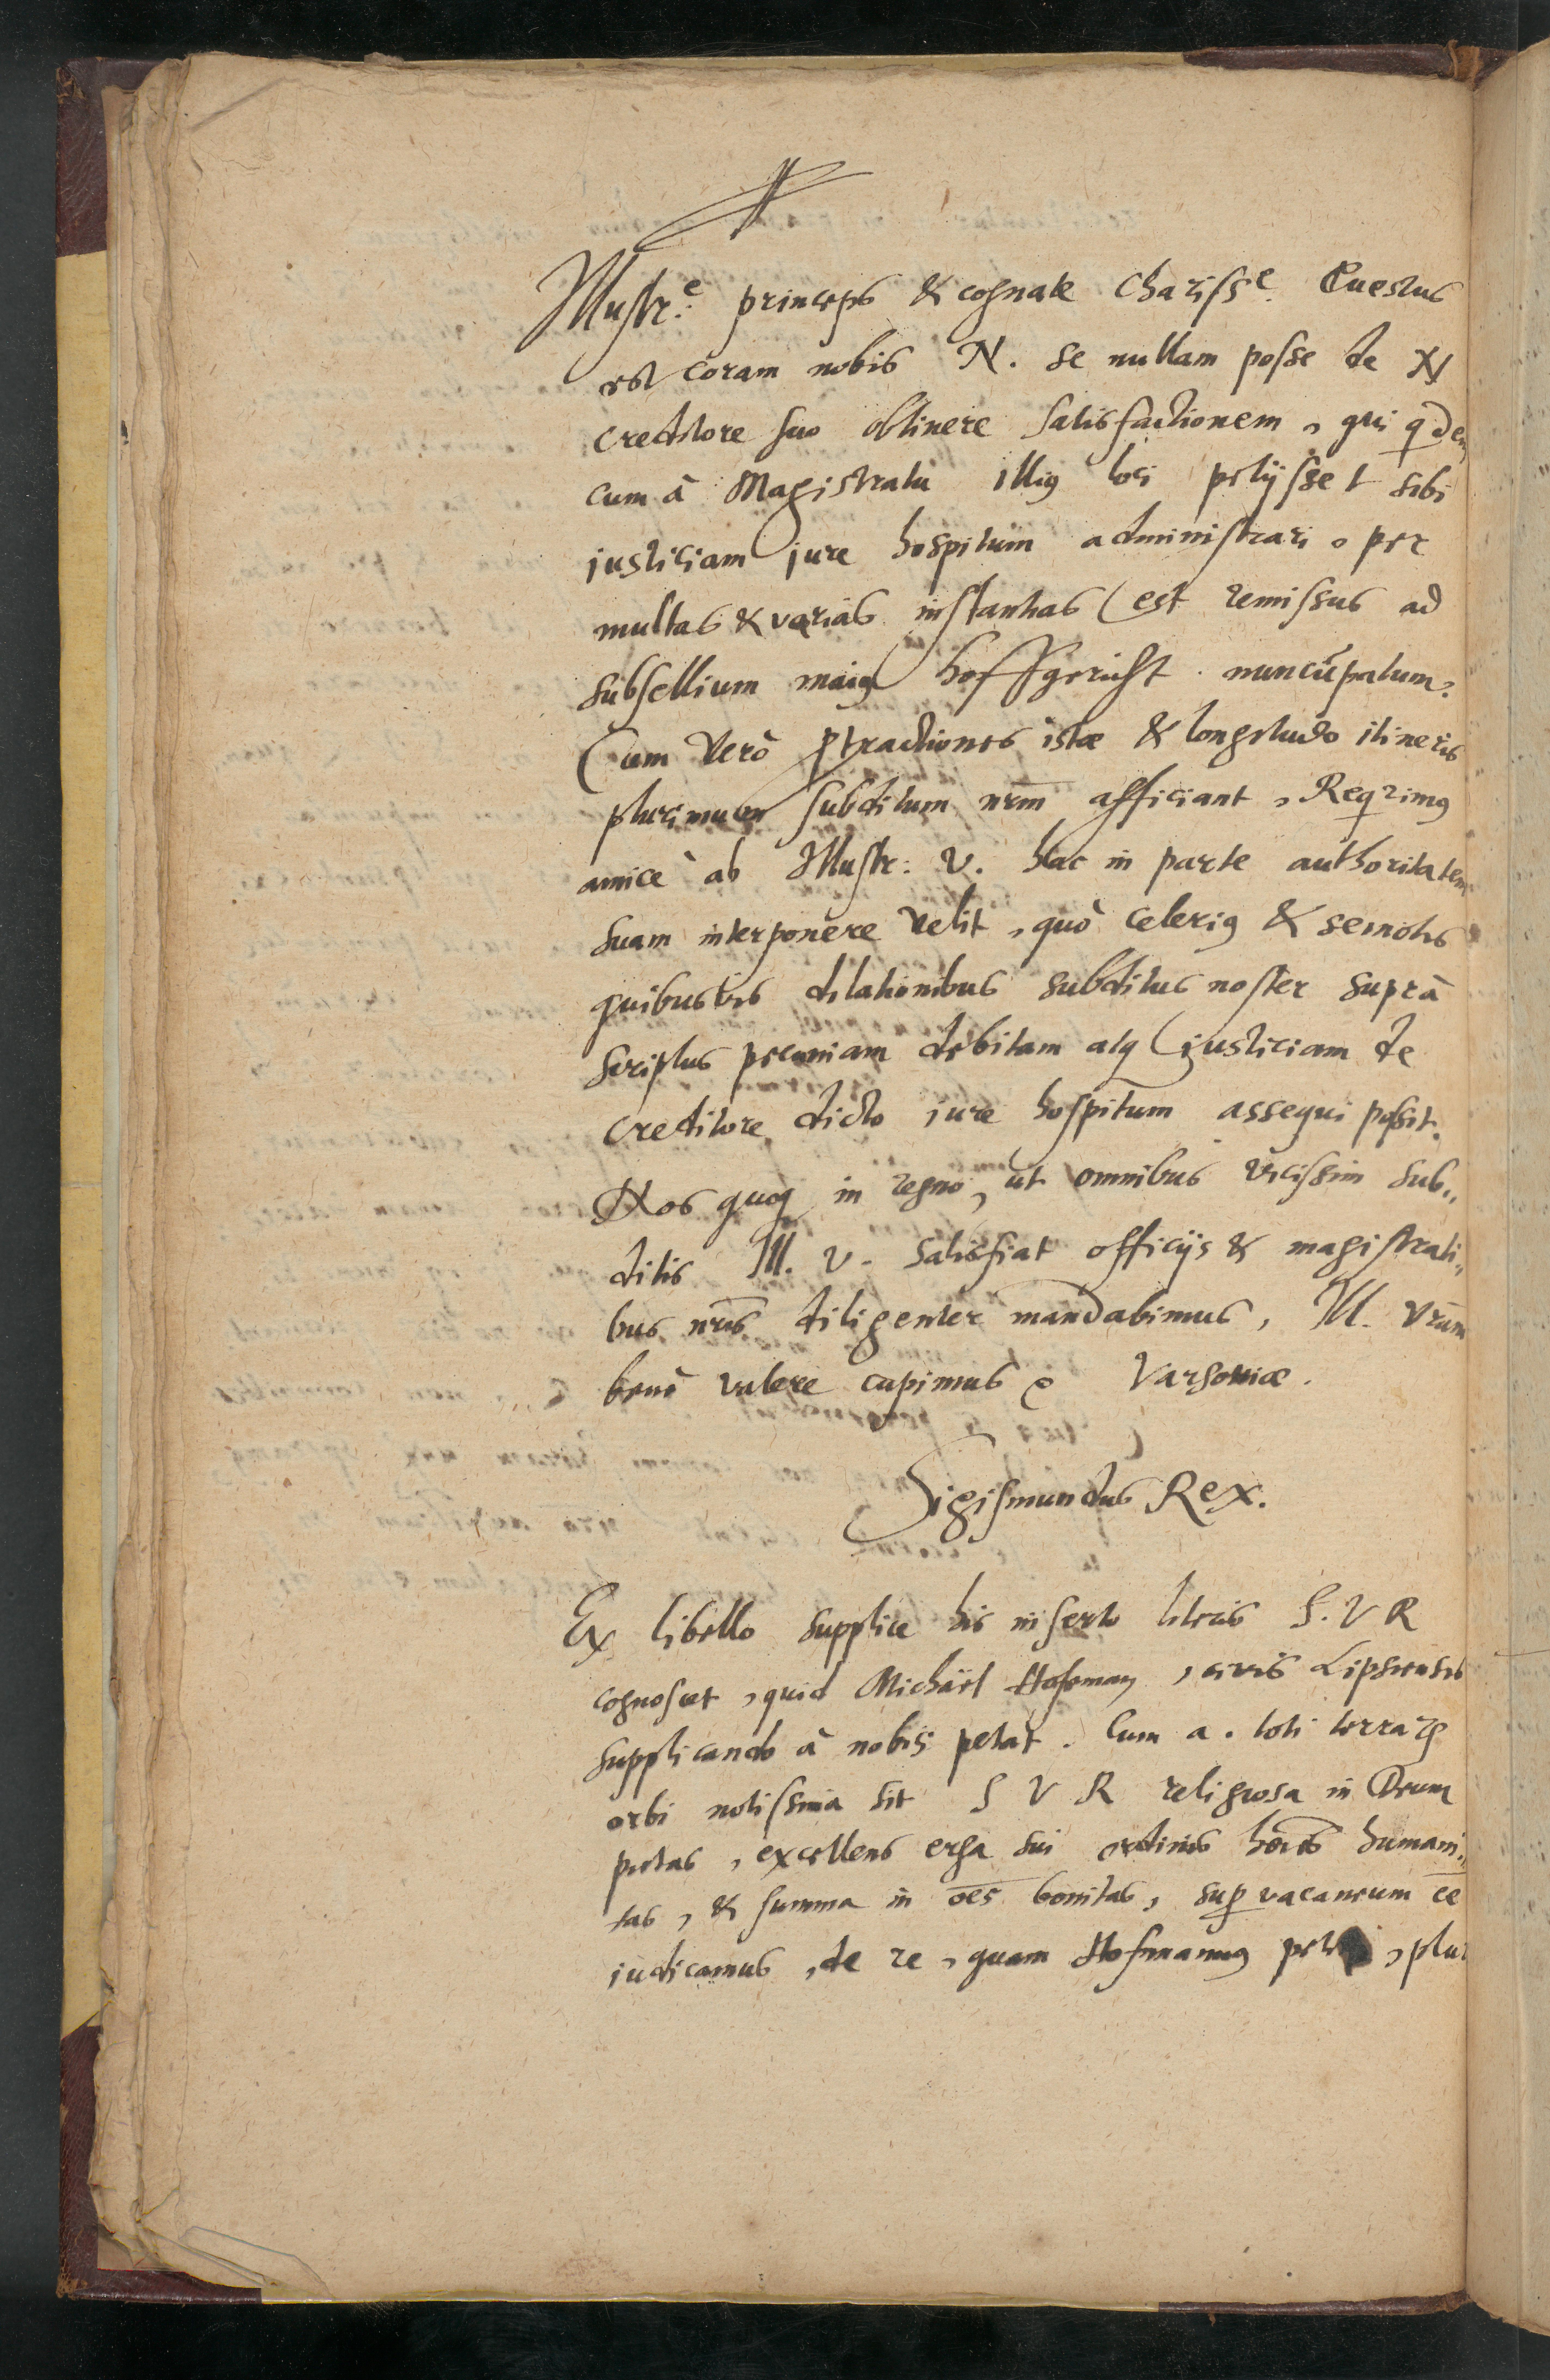 Illustr.e princeps & cognate Chariss.e Questus
est coram nobis N. se nullam posse de N
creditore suo obtinere satisfactionem, qui qdem
cum à Magistratu illig loci petijsset sibi
justiciam jure hospitum administrari, per
multas & varias instantias est remissus ad
subsellium maig hoffgericht nuncupatum.
Cum verò ptractiones istæ & longitudo itineris
plurimum subditum nrm afficiant, Reqrimg
amicè ab Illustr: V. hac in parte authoritatem
suam interponere velit, quò celerig & semotis
quibusvis dilationibus subditus noster suprà
scriptus pecuniam debitam atq justiciam de
creditore dicto iure hospitum assequi possit.
Nos quoq in regno, ut omnibus vicissim sub„
ditis Ill. V. satisfiat officijs & magistrati„
bus nris diligenter mandabimus, Ill. Vram
benè valere cupimus Varsoviæ.
Sigismundus Rex.
Ex libello supplice his inserto literis S. V R
cognoscet, quid Michäel Hofeman, civis Lipsiensis
supplicando à nobis petat. Cum a. toti terrarum
orbi notissima sit S V R religiosa in Deum
pietas, excellens erga sui ordinis hoies humani„
tas, & summa in oes bonitas, supvacaneum ee
iudicamus, de re, quam Hofmannus , plu